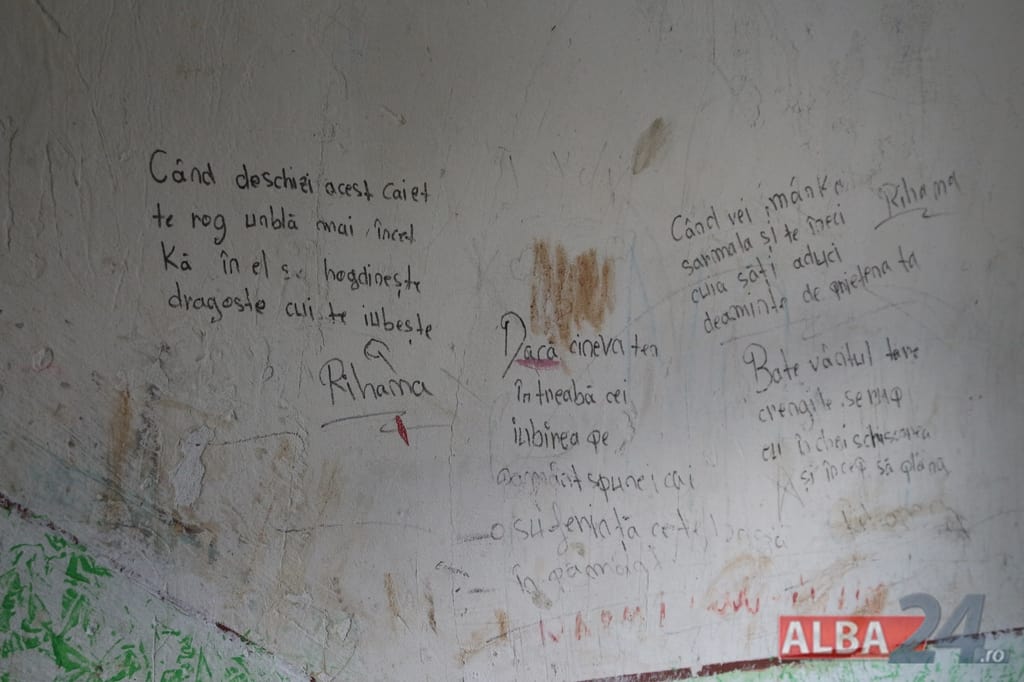 Când deschizi acest caiet
te rog unblă mai încet
Kă în el se hogdinește
dragoste cui te iubește
Rihama
Dacă cineva ten
întreabă cei
iubirea pe
pământ spunei căi
o suferiață
în pământ
Când vei mânka
sarmala și te îneci
cuia săți aduci
deaminte de prietena ta
Rihama
Bate vântul tare
crengile se rup
eu închei scrisoarea
și încep să plâng
ALBA24.ro